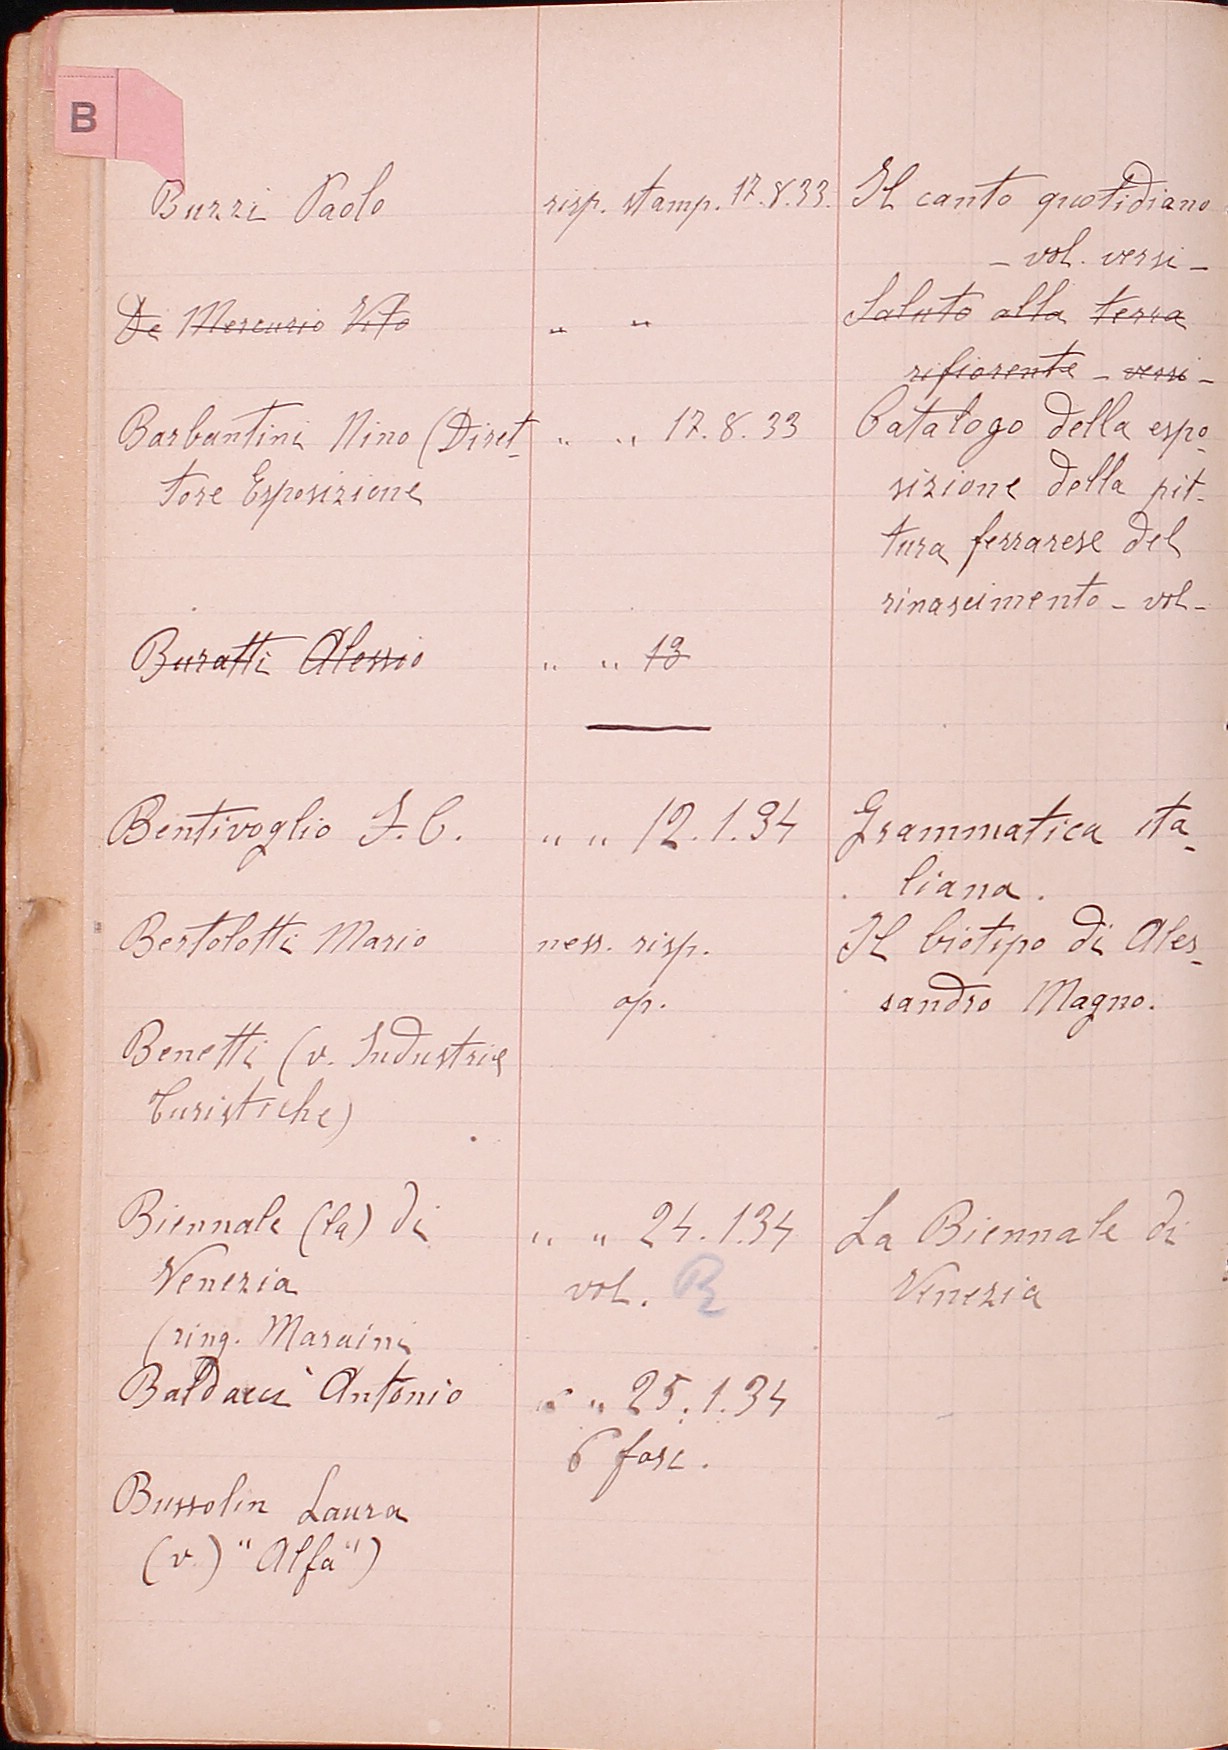 B
Buzzi Paolo risp. stamp. 17.8.33. Il canto quotidiano
- vol. versi -
De Mercurio Vito " " Saluto alla terra
rifiorente - versi -
Barbantini Nino (Diret- " " 17.8.33 Catalogo della espo-
tore Esposizione sizione della pit-
tura ferrarese del
rinascimento - vol -
Buratti Alessio " " 13
Bentivoglio F. C. " " 12.1.34 Grammatica ita-
liana.
Bertolotti Mario ness. risp. Il biotipo di Ales-
op. sandro Magno.
Benetti (v. Industrie
Turistiche)
Biennale (la) di " " 24.1.34 La Biennale di
Venezia vol. Venezia
(ring. Maraini
Baldacci Antonio " " 25.1.34
6 fasc.
Bussolin Laura
(v.) "Alfa")